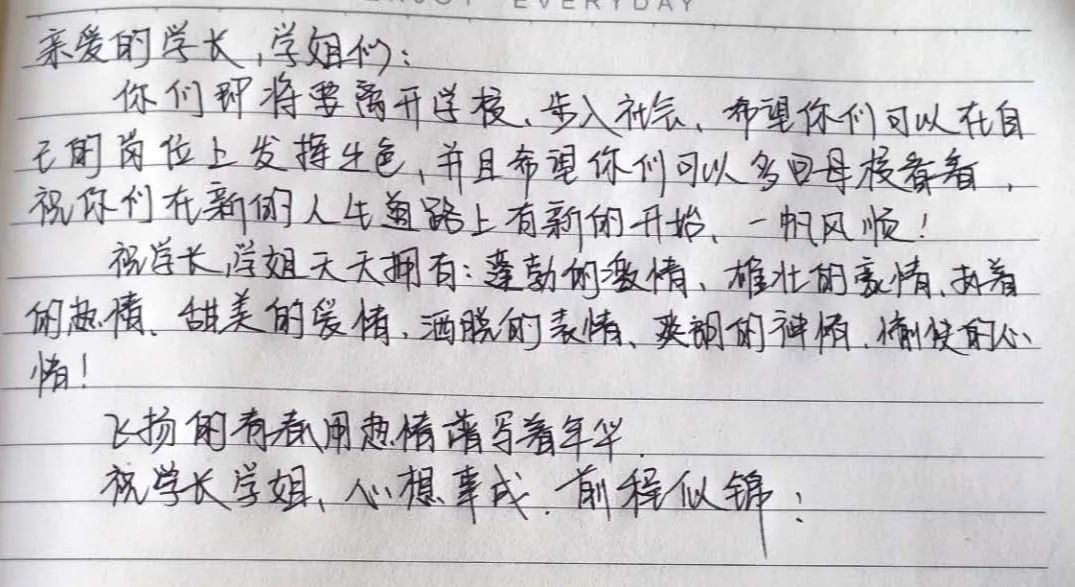 ENJOY EVERYDAY
亲爱的学长,学姐们:
你们即将要离开学校、步入社会、希望你们可以在自
己的岗位上发挥出色,并且希望你们可以多回母校看看,
祝你们在新的人生道路上有新的开始、一帆风顺!
祝学长,学姐天天拥有:蓬勃的激情、雄壮的豪情、执着
的热情、甜美的爱情、洒脱的表情、爽朗的神情、愉快的心
情!
飞扬的青春用热情谱写着年华.
祝学长学姐、心想事成.前程似锦: